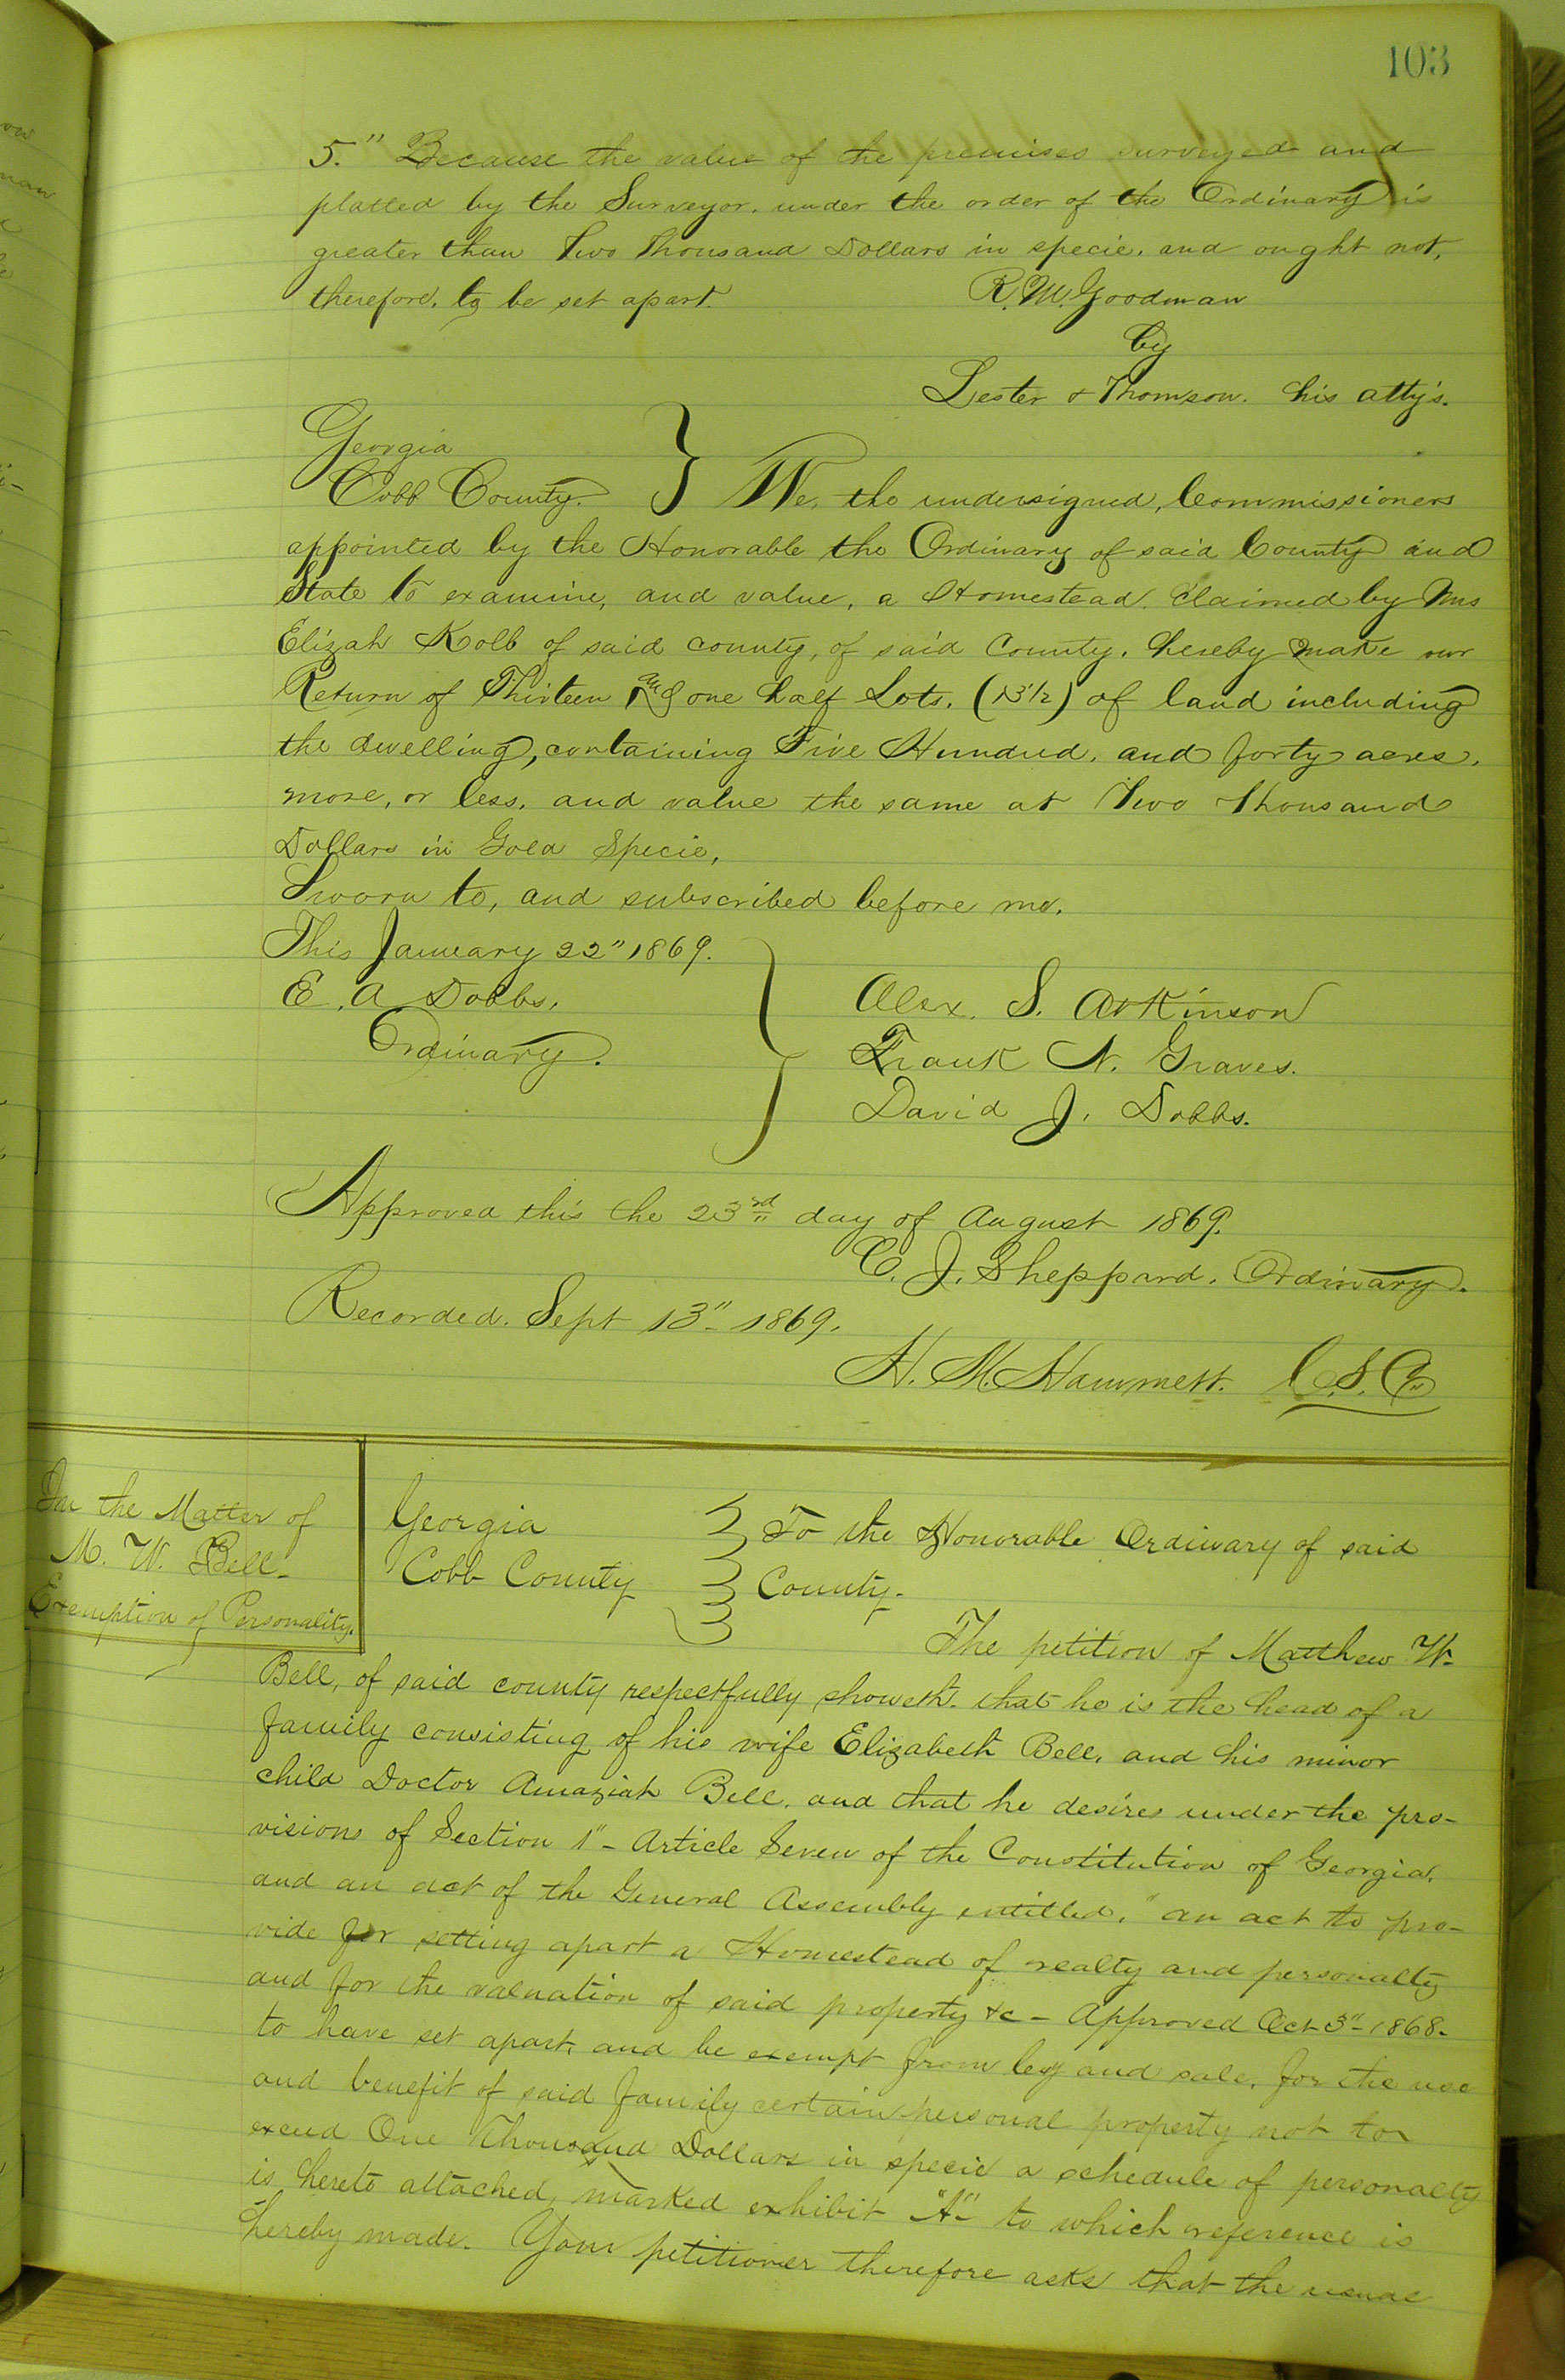 103
5." Because the value of the premises surveyed and
platted by the Surveyor. under the order of the Ordinary is
greater than Two Thousand Dollars in specie. and ought not,
therefore, to be set apart. R. M. Goodman
by
Lester & Thomson. his atty's.
Georgia
Cobb County. } We, the undersigned, Commissioners
appointed by the Honorable the Ordinary of said County and
State to examine, and value, a Homestead. Claimed by Mrs
Elizah Kolb of said county, of said County. hereby make our
Return of Thirteen and one half Lots. (13 1/2) of land including
the dwelling, containing Five Hundred. and forty acres.
more, or less. and value the same at Two Thousand
Dollars in Gold Specie,
Sworn to, and subscribed before me.
This January 22" 1869.
E. A Dobbs, Alex. S. Atkinson
Ordinary. Frank N. Graves.
David J. Dobbs.
Approved this the 23rd day of August 1869.
C. J. Sheppard. Ordinary.
Recorded. Sept 13" 1869.
H. M. Hammett. C. S. C.
In the Matter of
M. W. Bell.
Exemption of Personality.
Georgia } To the Honorable Ordinary of said
Cobb County } County.
The petition of Matthew W.
Bell, of said county respectfully showeth. that he is the head of a
family consisting of his wife Elizabeth Bell, and his minor
child Doctor Amaziah Bell. and that he desires under the pro-
visions of Section 1" - Article Seven of the Constitution of Georgia.
and an act of the General Assembly entitled. "an act to pro-
vide for setting apart a Homestead of realty and personalty
and for the valuation of said property &c - Approved Oct 3" - 1868.
to have set apart, and be exempt from levy and sale, for the use
and benefit of said family certain personal property not to
exceed One Thousand Dollars in specie a schedule of personalty
is hereto attached, marked exhibit "A" to which reference is
hereby made. Your petitioner therefore asks that the usual